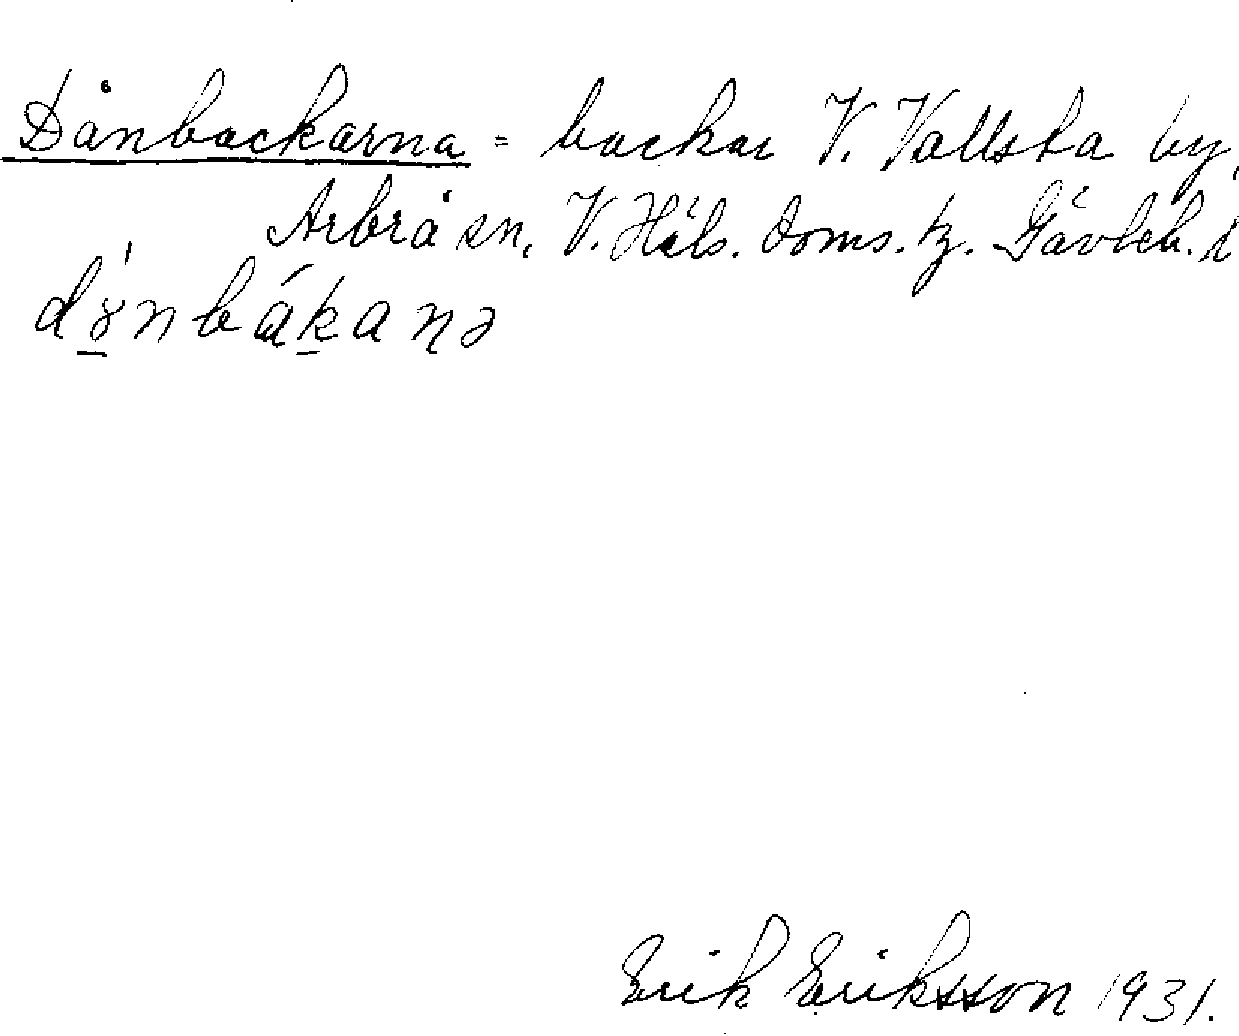 Dånbackarna = backar V. Vallsta by,
Arbrå sn, V. Häls. doms. tz. Gävleb. l
dɤ́nbákaṇə
Erik Eriksson 1931.